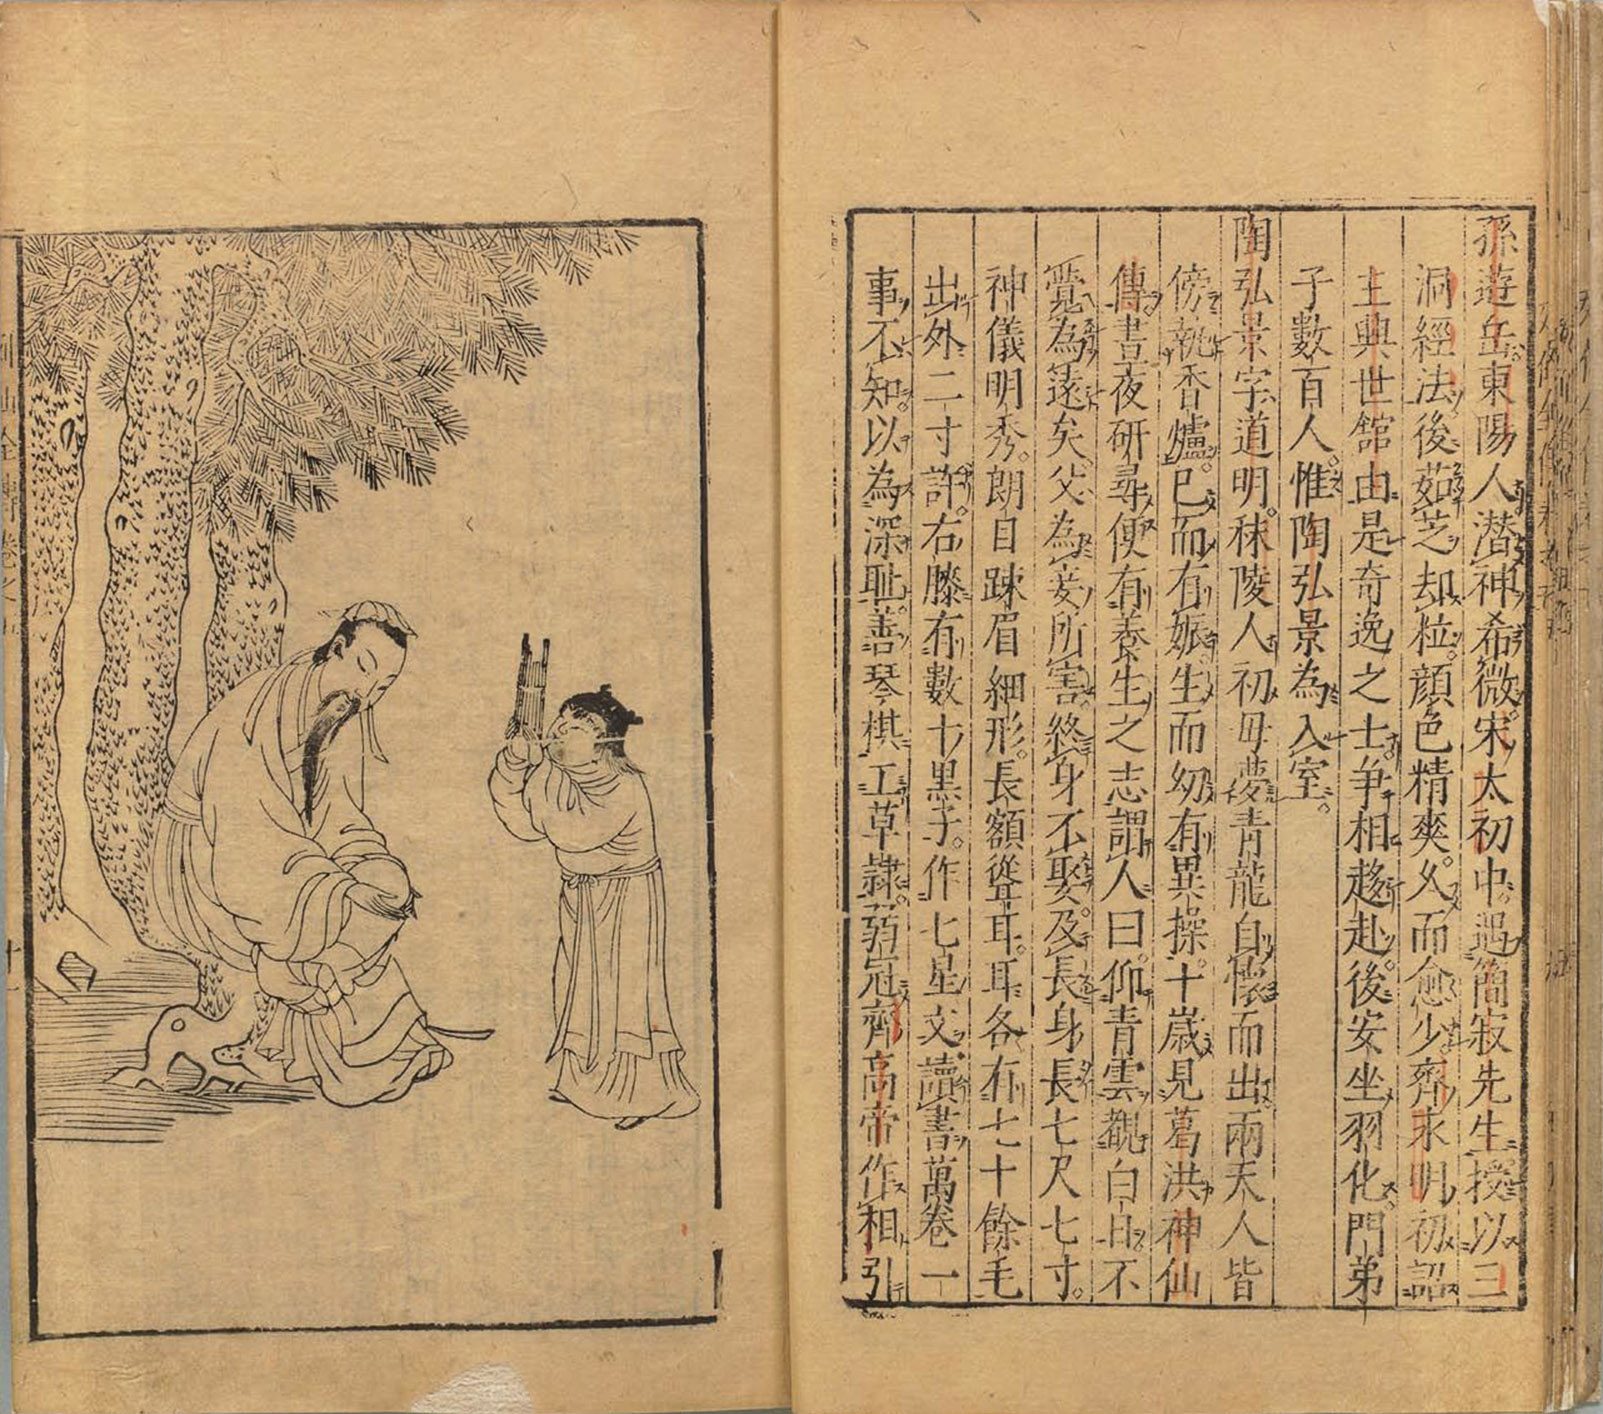 孫遊岳。東陽人潜神希微。宋太初中。遇簡寂先生。授以三
洞經法後茹芝却粒。顔色精爽。久而愈少。齊永明初詔
主興世舘由是奇逸之士。争相趍赴。後安坐羽化。門弟
子數百人。惟陶弘景為入室。
陶弘景字道明。秣陵人初母夢青龍自懐而出。兩天人皆
傍執香爐。已而有娠生而幼有異操。十歳見葛洪神仙
傳。晝夜研尋便有養生之志謂人曰。仰青雲覩白日。不
覺為遠矣。父為妾所害。終身不娶。及長身長七尺七寸。
神儀明秀。朗目踈眉細形。長額聳耳。耳各有七十餘毛
出外二寸許。右膝有數十黒子。作七星文讀書萬卷一
事不知。以為深耻。善琴棋工草隷。弱冠齊高帝作相引
列仙全傳卷之五